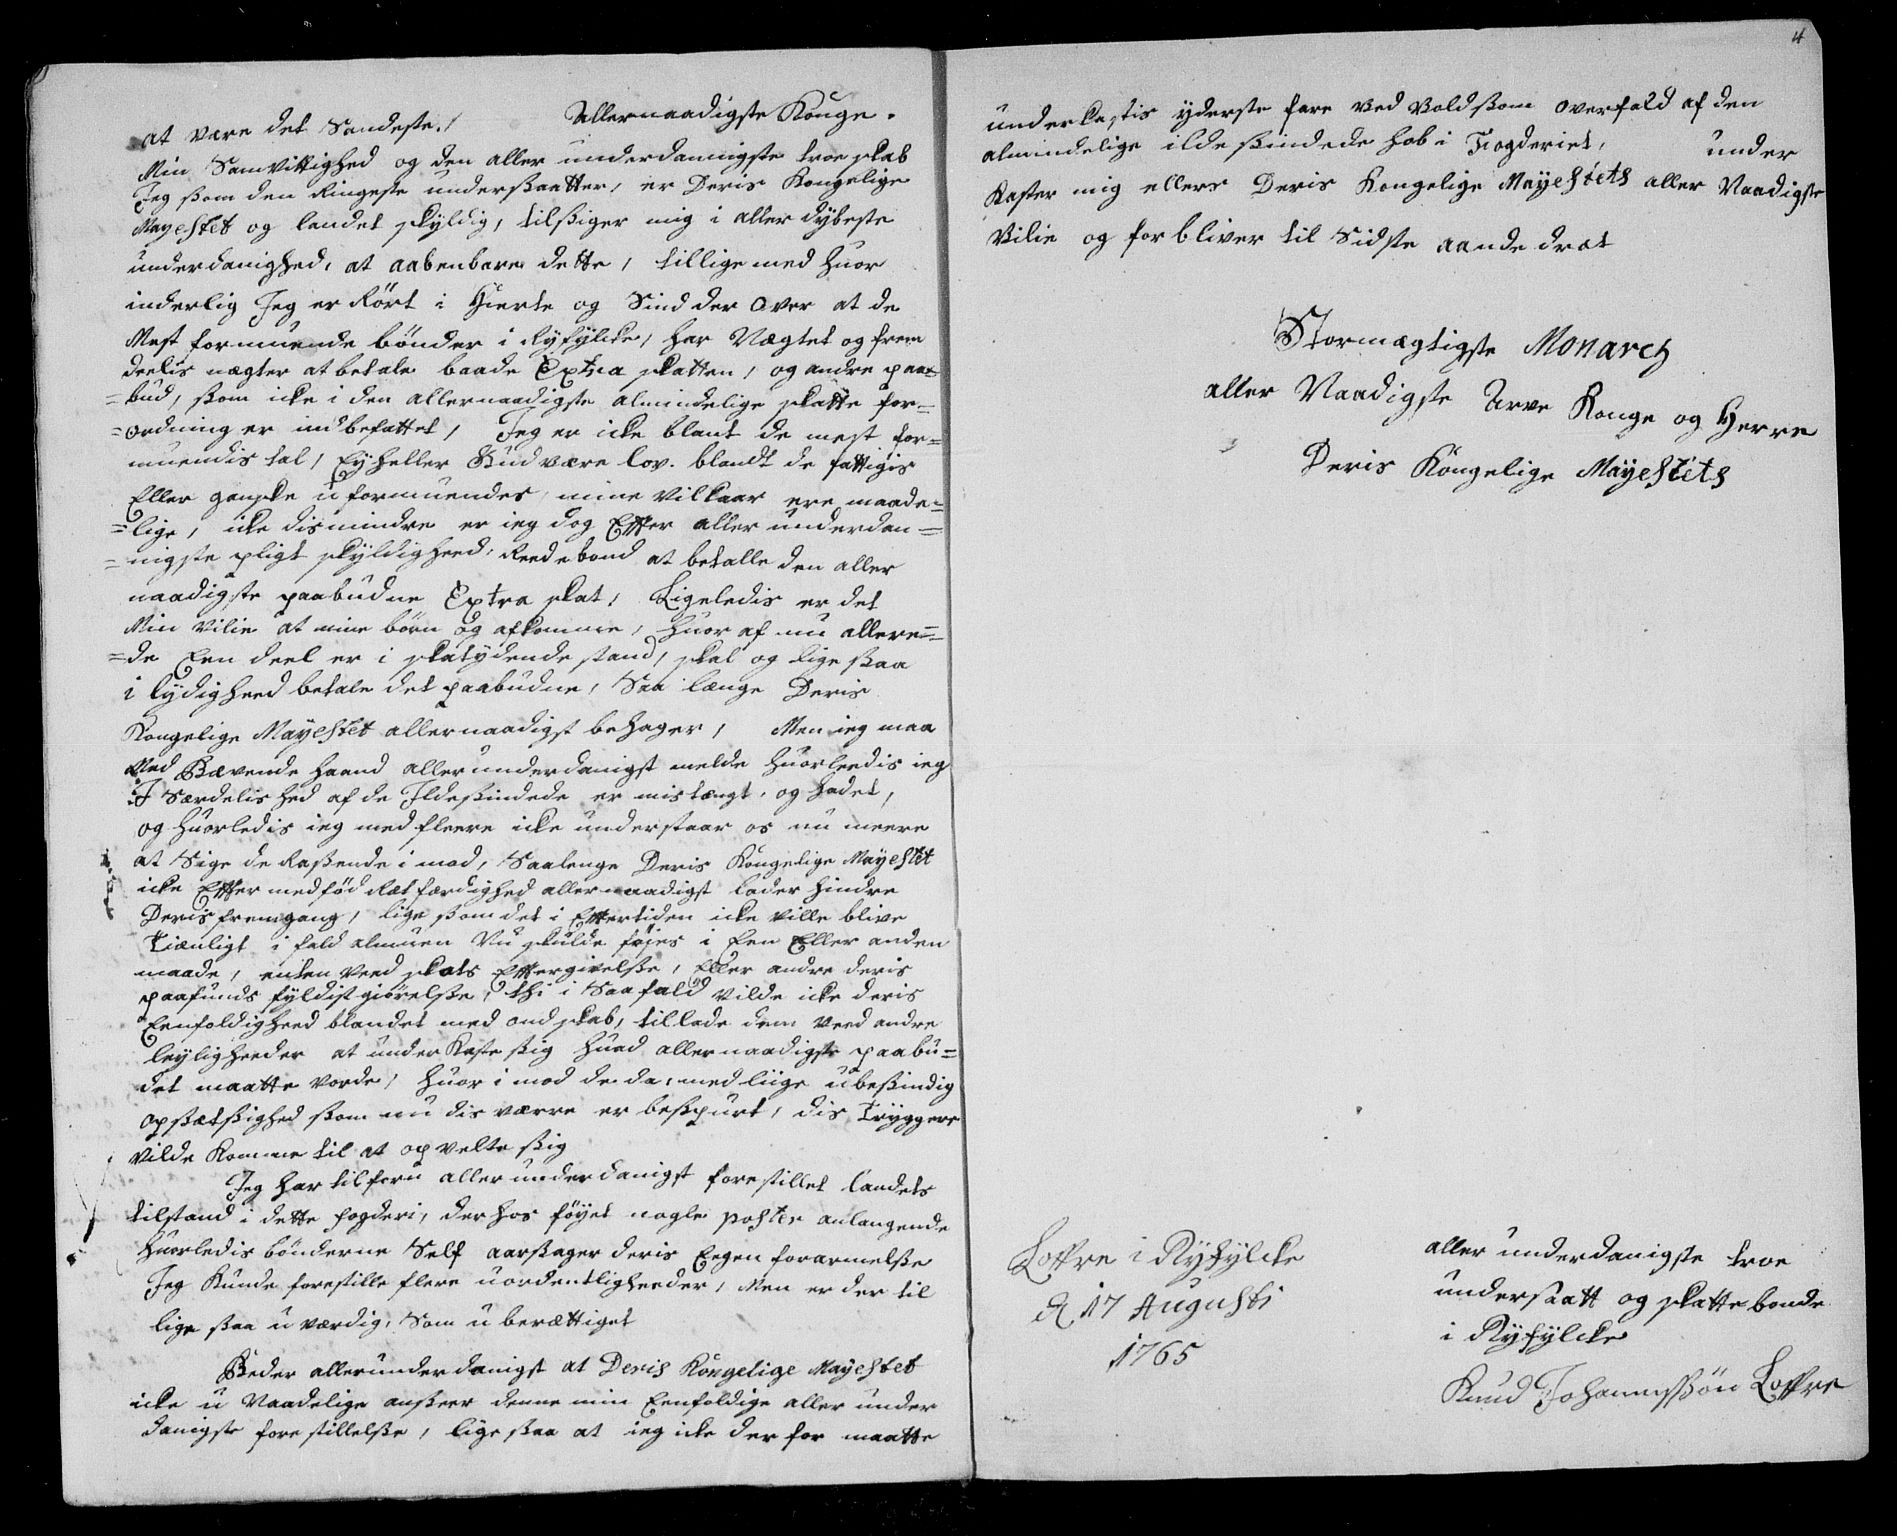 at være det Sandeste./ Allernaadigste Konge.
Min Samvittighed og den aller underdanigste troeskab
Jeg ssom den Ringeste underssaatter, er Deris Kongelige
Mayestet og landet skyldig, tilssiger mig i aller dÿbeste
underdanighed, at aabenbare dette, tillige med huor
inderlig Jeg er Rørt i Hierte og Sind der over at de
Mest formuende bønder i Ryfylcke, har Nægtet og frem
deelis nægter at betale baade Extra skatten, og andre paa=
=bud, ssom icke i den allernaadigste almindelige skatte for=
=ordning er indbefattet, Jeg er icke blant de mest for=
muendis tal, Eÿ heller Gud være lov. blandt de fattigis
Eller gandske uformuendes, mine vilkaar ere maade=
=lige, icke dis mindre er ieg dog Efter aller underdan=
=nigste pligt skÿldigheed, Reedebond at betalle den aller
naadigste paabudne Extra skat, Ligeledis er det
Min vilie at mine børn og afkomme, huor af nu allere=
=de Een deel er i skatÿdende stand, skal og lige ssaa
i lydigheed betale det paabudne, Saa længe Deris
Kongelige Mayestet allernaadigst behager, Men ieg maa
Med Bævende haand allerunderdanigst melde huorleedis ieg
I Særdelished af de Ildessindede er mistængt, og hadet,
og huorledis ieg med fleere icke understaar os nu meere
at Sige de Rassende i mod, Saalenge Deris Kongelige Mayestet
icke Efter medfød Retfærdighed allernaadigst lader hindre
Deris fremgang, lige ssom det i Eftertiden icke ville blive
Tienligt i fald almuen Nu skulde føjes i Een Eller anden
maade, enten veed skats Eftergivelsse, Eller andre deris
paafunds fyldistgiørelsse, thi i Saafald vilde icke deris
Eenfoldigheed blandet med ondskab, tillade dem veed andre
leyligheeder at underkaste ssig huad allernaadigste paabu=
det maatte vorde, huor i mod de da, med liige ubessindig
opssætssighed ssom nu dis værre er besspurt, dis Trÿggere
vilde komme til at opvelte ssig
Jeg har tilforn allerunderdanigst forestillet landets
tilstand i dette fogderi, der hos føÿet nogle poster anlangende
huorledis bønderne Self aarssager deris Eegen forarmelsse
Jeg kunde forestille flere uordentligheeder, Men er der til
lige ssaa uværdig, Som uberættiget
Beder allerunderdanigst at Deris Kongelige Mayestet
icke u Naadelige ansseer denne min Eenfoldige aller under
danigste forestillelsse, lige ssaa at ieg icke der for maatte
4
underkastis ÿderste fare ved voldssom overfald af den
almindelige ildessindede hob i Fogderiet, under
kaster mig ellers Deris Kongelige Mayestets aller Naadigste
vilie og forbliver til Sidste aandedræt
Stormægtigste Monarch
aller Naadigste Arve Konge og Herre
Deris Kongelige Mayestets
Loffre i Ryfylcke
d 17 Augusti
1765
aller underdanigste troe
underssaatt og skattebonde
i Ryfylcke
Knud Johannssøn Loffre